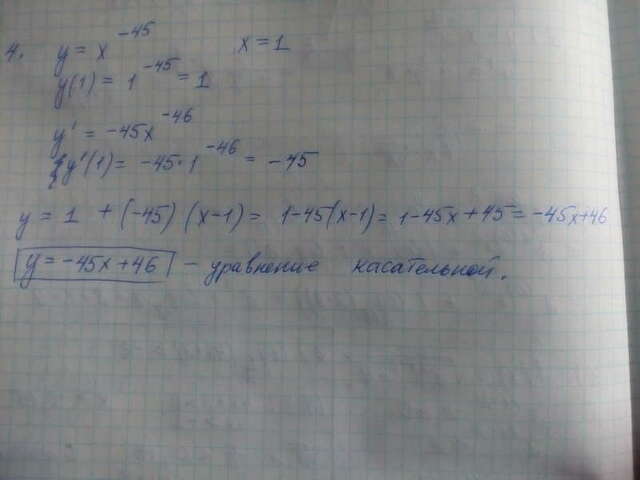 4. y = x^-45 x = 1
y(1) = 1^-45 = 1
y' = -45x^-46
y'(1) = -45·1^-46 = -45
y = 1 + (-45) (x-1) = 1-45(x-1) = 1-45x+45 = -45x+46
y = -45x+46 - уравнение касательной.